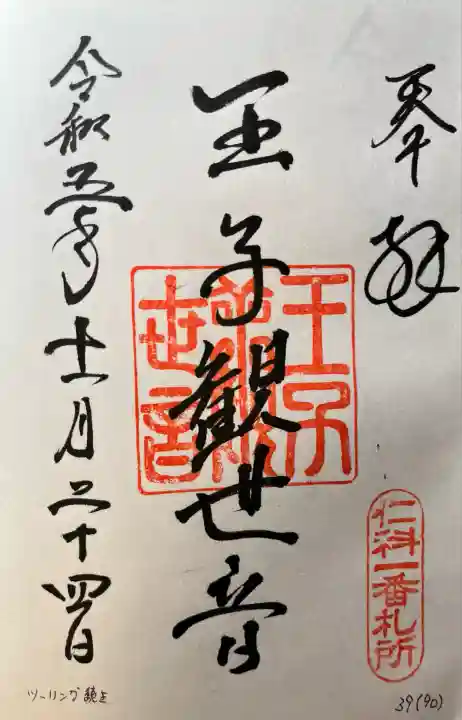 奉拝
仁科一番札所
王子観世音
王子
世音
令和五年十一月二十四日
ツーリング
39(90)